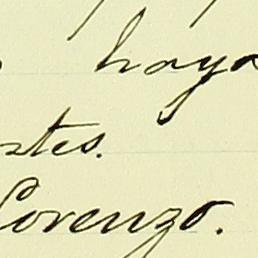 haya
ntes.
Lorenzo.